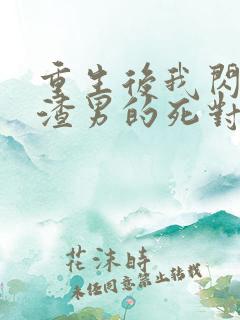 重生後我閃
渣男的死對
花沫時
未經同意禁止轉載